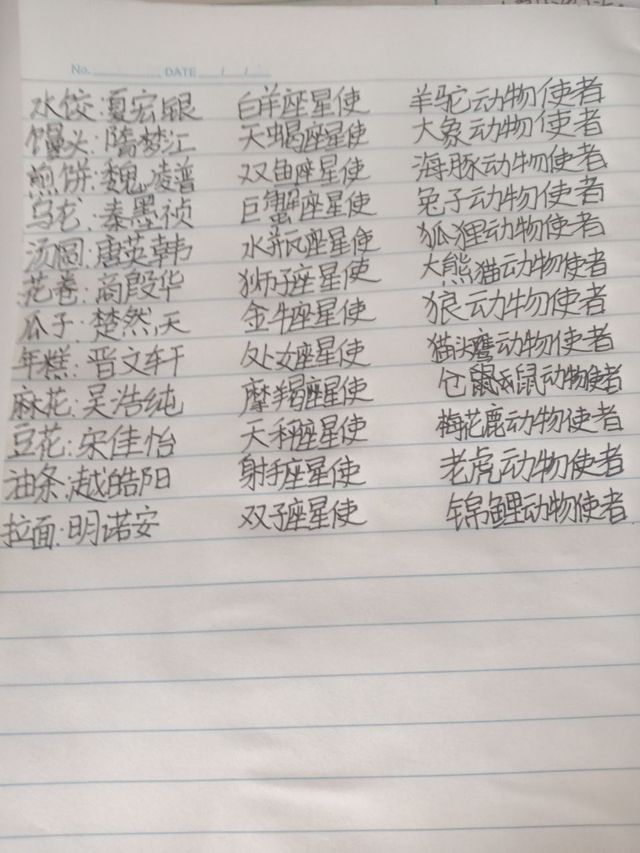 No. DATE / / /
水饺:夏宏银 白羊座星使 羊驼动物使者
馒头:隋梦江 天蝎座星使 大象动物使者
煎饼:魏凌普 双鱼座星使 海豚动物使者
乌龙:秦墨祯 巨蟹座星使 兔子动物使者
汤圆:唐英韩 水瓶座星使 狐狸动物使者
花卷:商殷华 狮子座星使 大熊猫动物使者
瓜子:楚然天 金牛座星使 狼动物使者
年糕:晋文轩 处女座星使 猫头鹰动物使者
麻花:吴浩纯 摩羯座星使 仓鼠动物使者
豆花:宋佳怡 天秤座星使 梅花鹿动物使者
油条:越皓阳 射手座星使 老虎动物使者
拉面:明诺安 双子座星使 锦鲤动物使者